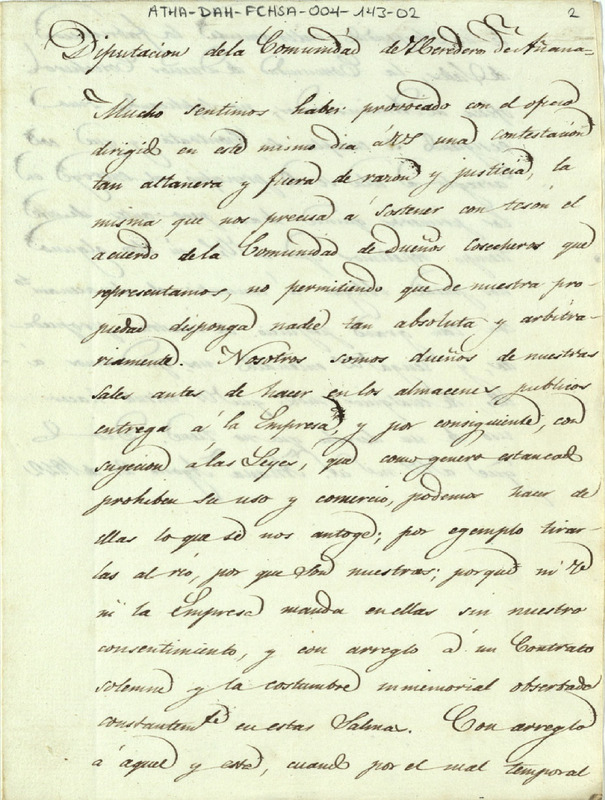 ATHA-DAH-FCHSA-004-143-02
2
Diputacion de la Comunidad de Herederos de Añana
Mucho sentimos haber provocado con el oficio
dirigido en este mismo dia á VS una contestacion
tan altanera y fuera de razon y justicia, la
misma que nos precisa á sostener con teson el
acuerdo de la Comunidad de Dueños Cosecheros que
representamos, no permitiendo que de nuestra pro-
piedad disponga nadie tan absoluta y arbitra-
riamente. Nosotros somos dueños de nuestras
sales antes de hacer en los almacenes publicos
entrega á la Empresa, y por consiguiente, con
sugecion á las Leyes, que como genero estancado
prohiben su uso y comercio, podemos hacer de
ellas lo que se nos antoge; por egemplo tirar-
las al rio, por que son nuestras; porque ni
ni la Empresa manda en ellas sin nuestro
consentimiento, y con arreglo á un Contrato
solemne y la costumbre inmemorial observada
constantemte en estas Salinas. Con arreglo
á aquel y esta, cuando por el mal temporal